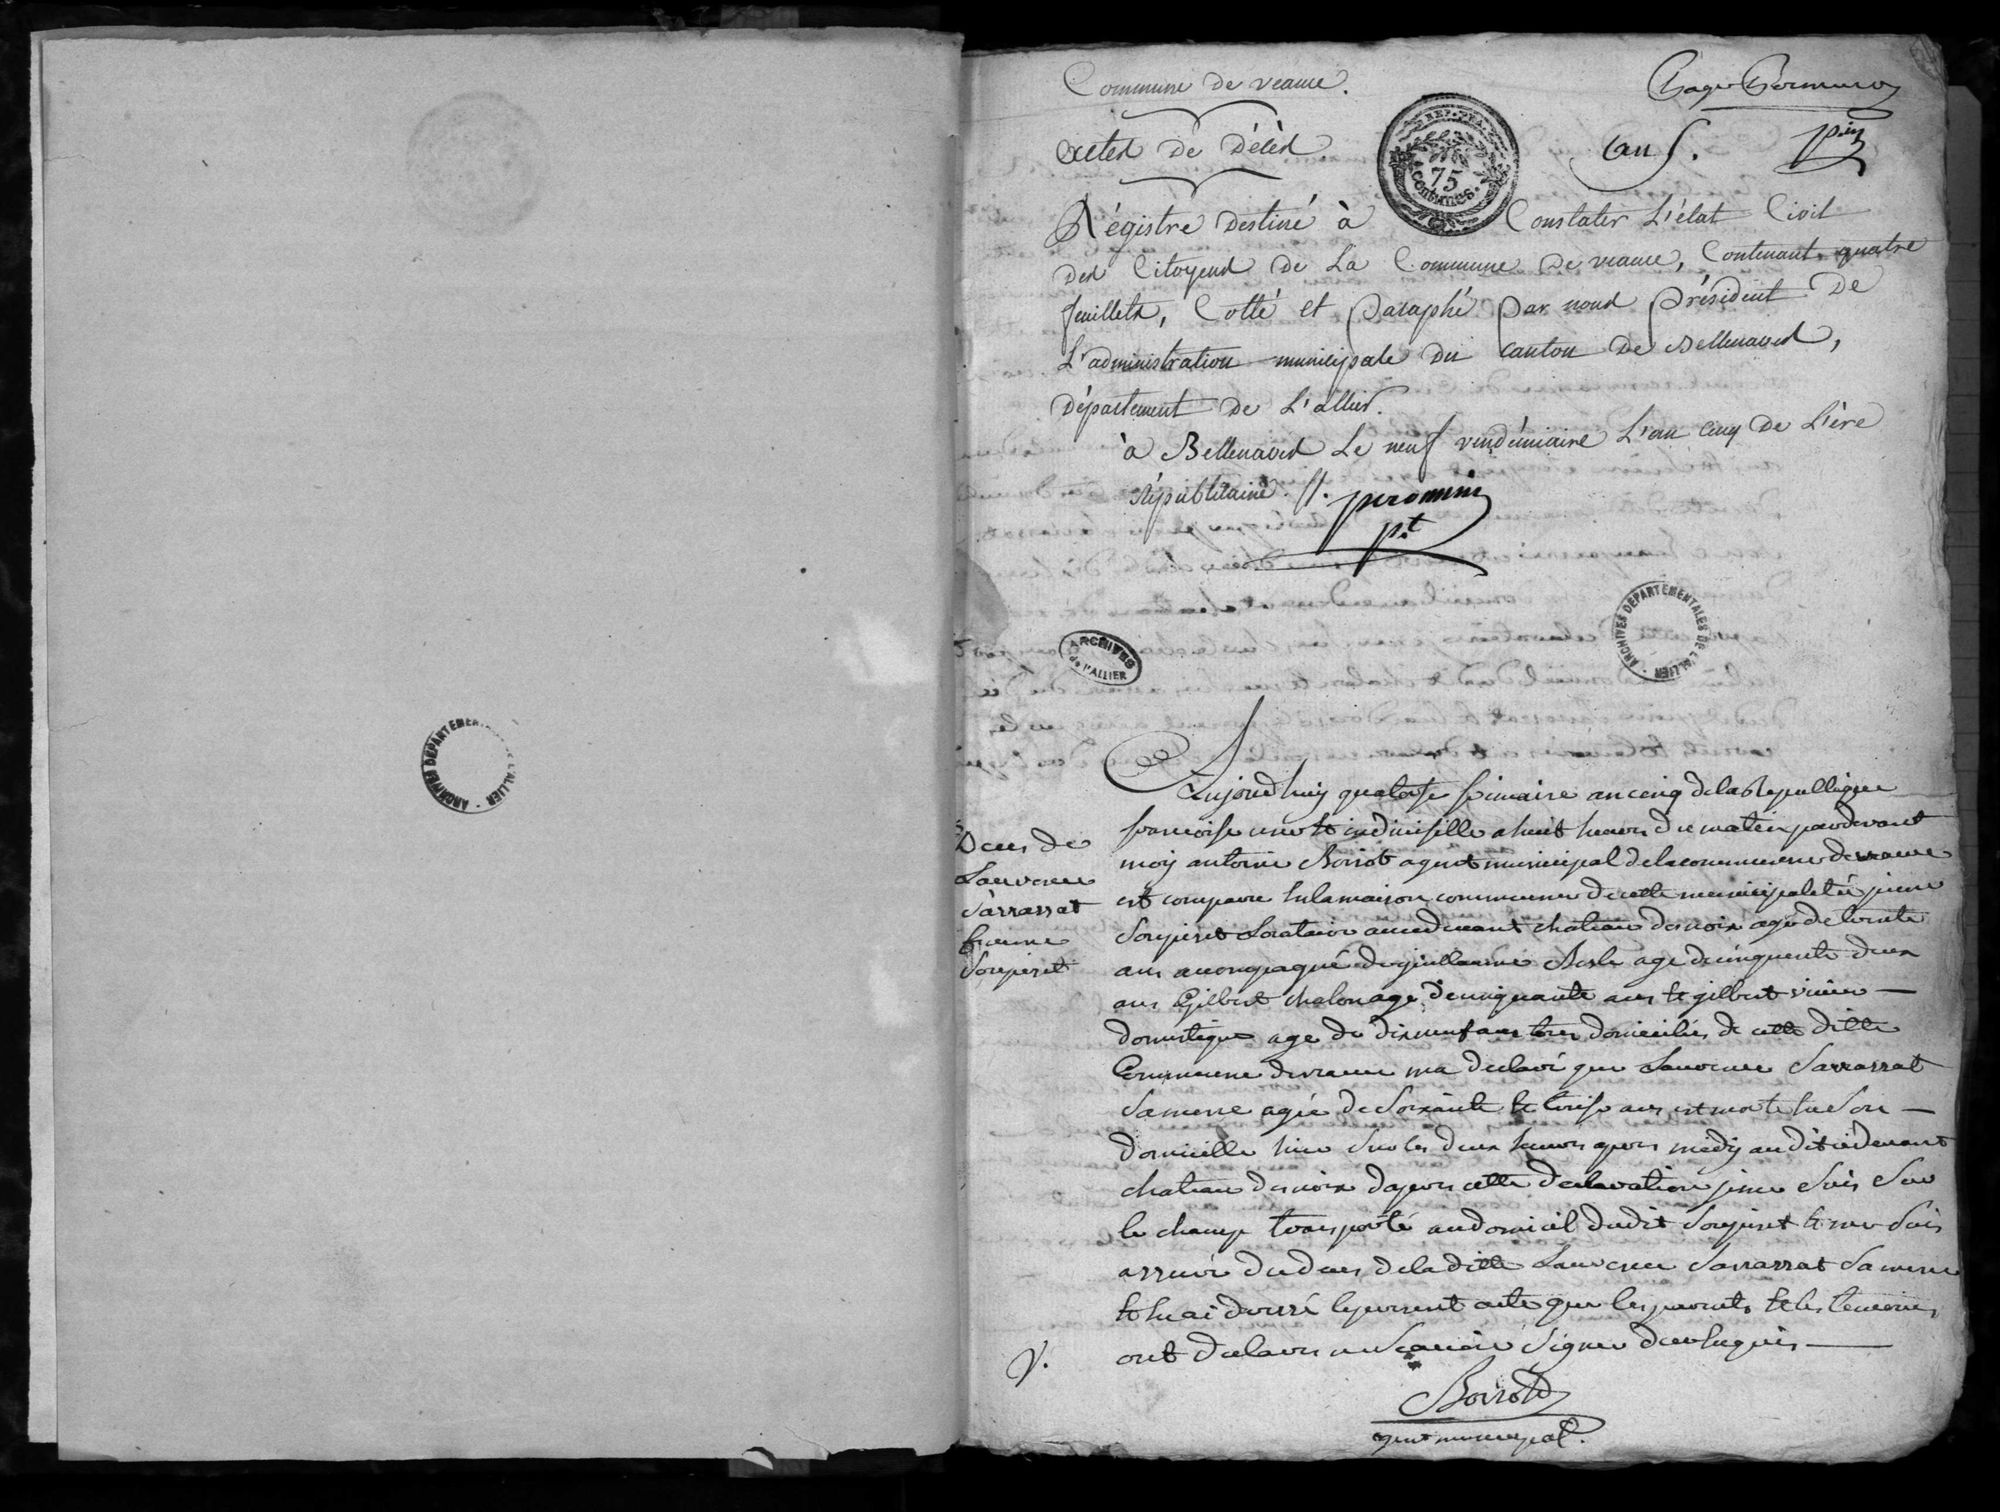 ARCHIVES DEPARTEMENTALES DE L'ALLIER
Commune de veauce.
page premiere
actes de décès
REP. FRA.
75
centimes.
an 5.
pin
Régistre destiné à Constater L'état Civil
des Citoyens de La Commune de veauce, Contenant quatre
feuillets, Cotté et paraphé par nous président de
L'administration municipale du canton de Bellenaves,
département de L'allier.
à Bellenaves Le neuf vendémiaire L'an cinq de L'ère
républicaine. //.
pt
ARCHIVES
de l'ALLIER
ARCHIVES DEPARTEMENTALES DE L'ALLIER
Deces de
Laurence
Sarrassat
femme
Soupiset
Aujourdhuy quatorse frimaire an cinq de la Republique
francoise une et indivisille a huit heures du matin pardevant
moy antoine Boirot agent municipal de la commune de veauce
est comparu en la maison commune de cette municipalité
Soupiset locataire au cidevant chateau age de trente
ans accompagné de guillaume age de cinquente deux
ans Gilbert chalon age de cinquante ans et gilbert
domestique age de dixneuf ans tous domiciliés de cette ditte
Commune de veauce ma declaré que Laurence Sarrassat
sa mere agée de soixante et treise ans est morte en son
domicille hier sur les deux heures apres midy au dit cidevant
chateau dapres cette declaration je me suis sur
le champ transporté au domicil dudit Soupiset et me suis
assuré du deces de la ditte Laurence Sarrassat sa mere
et en ai dressé le present acte que les parents et les temoins
ont declarés ne scavoir signer de ce enquis
V.
Boirot
agent municipal.